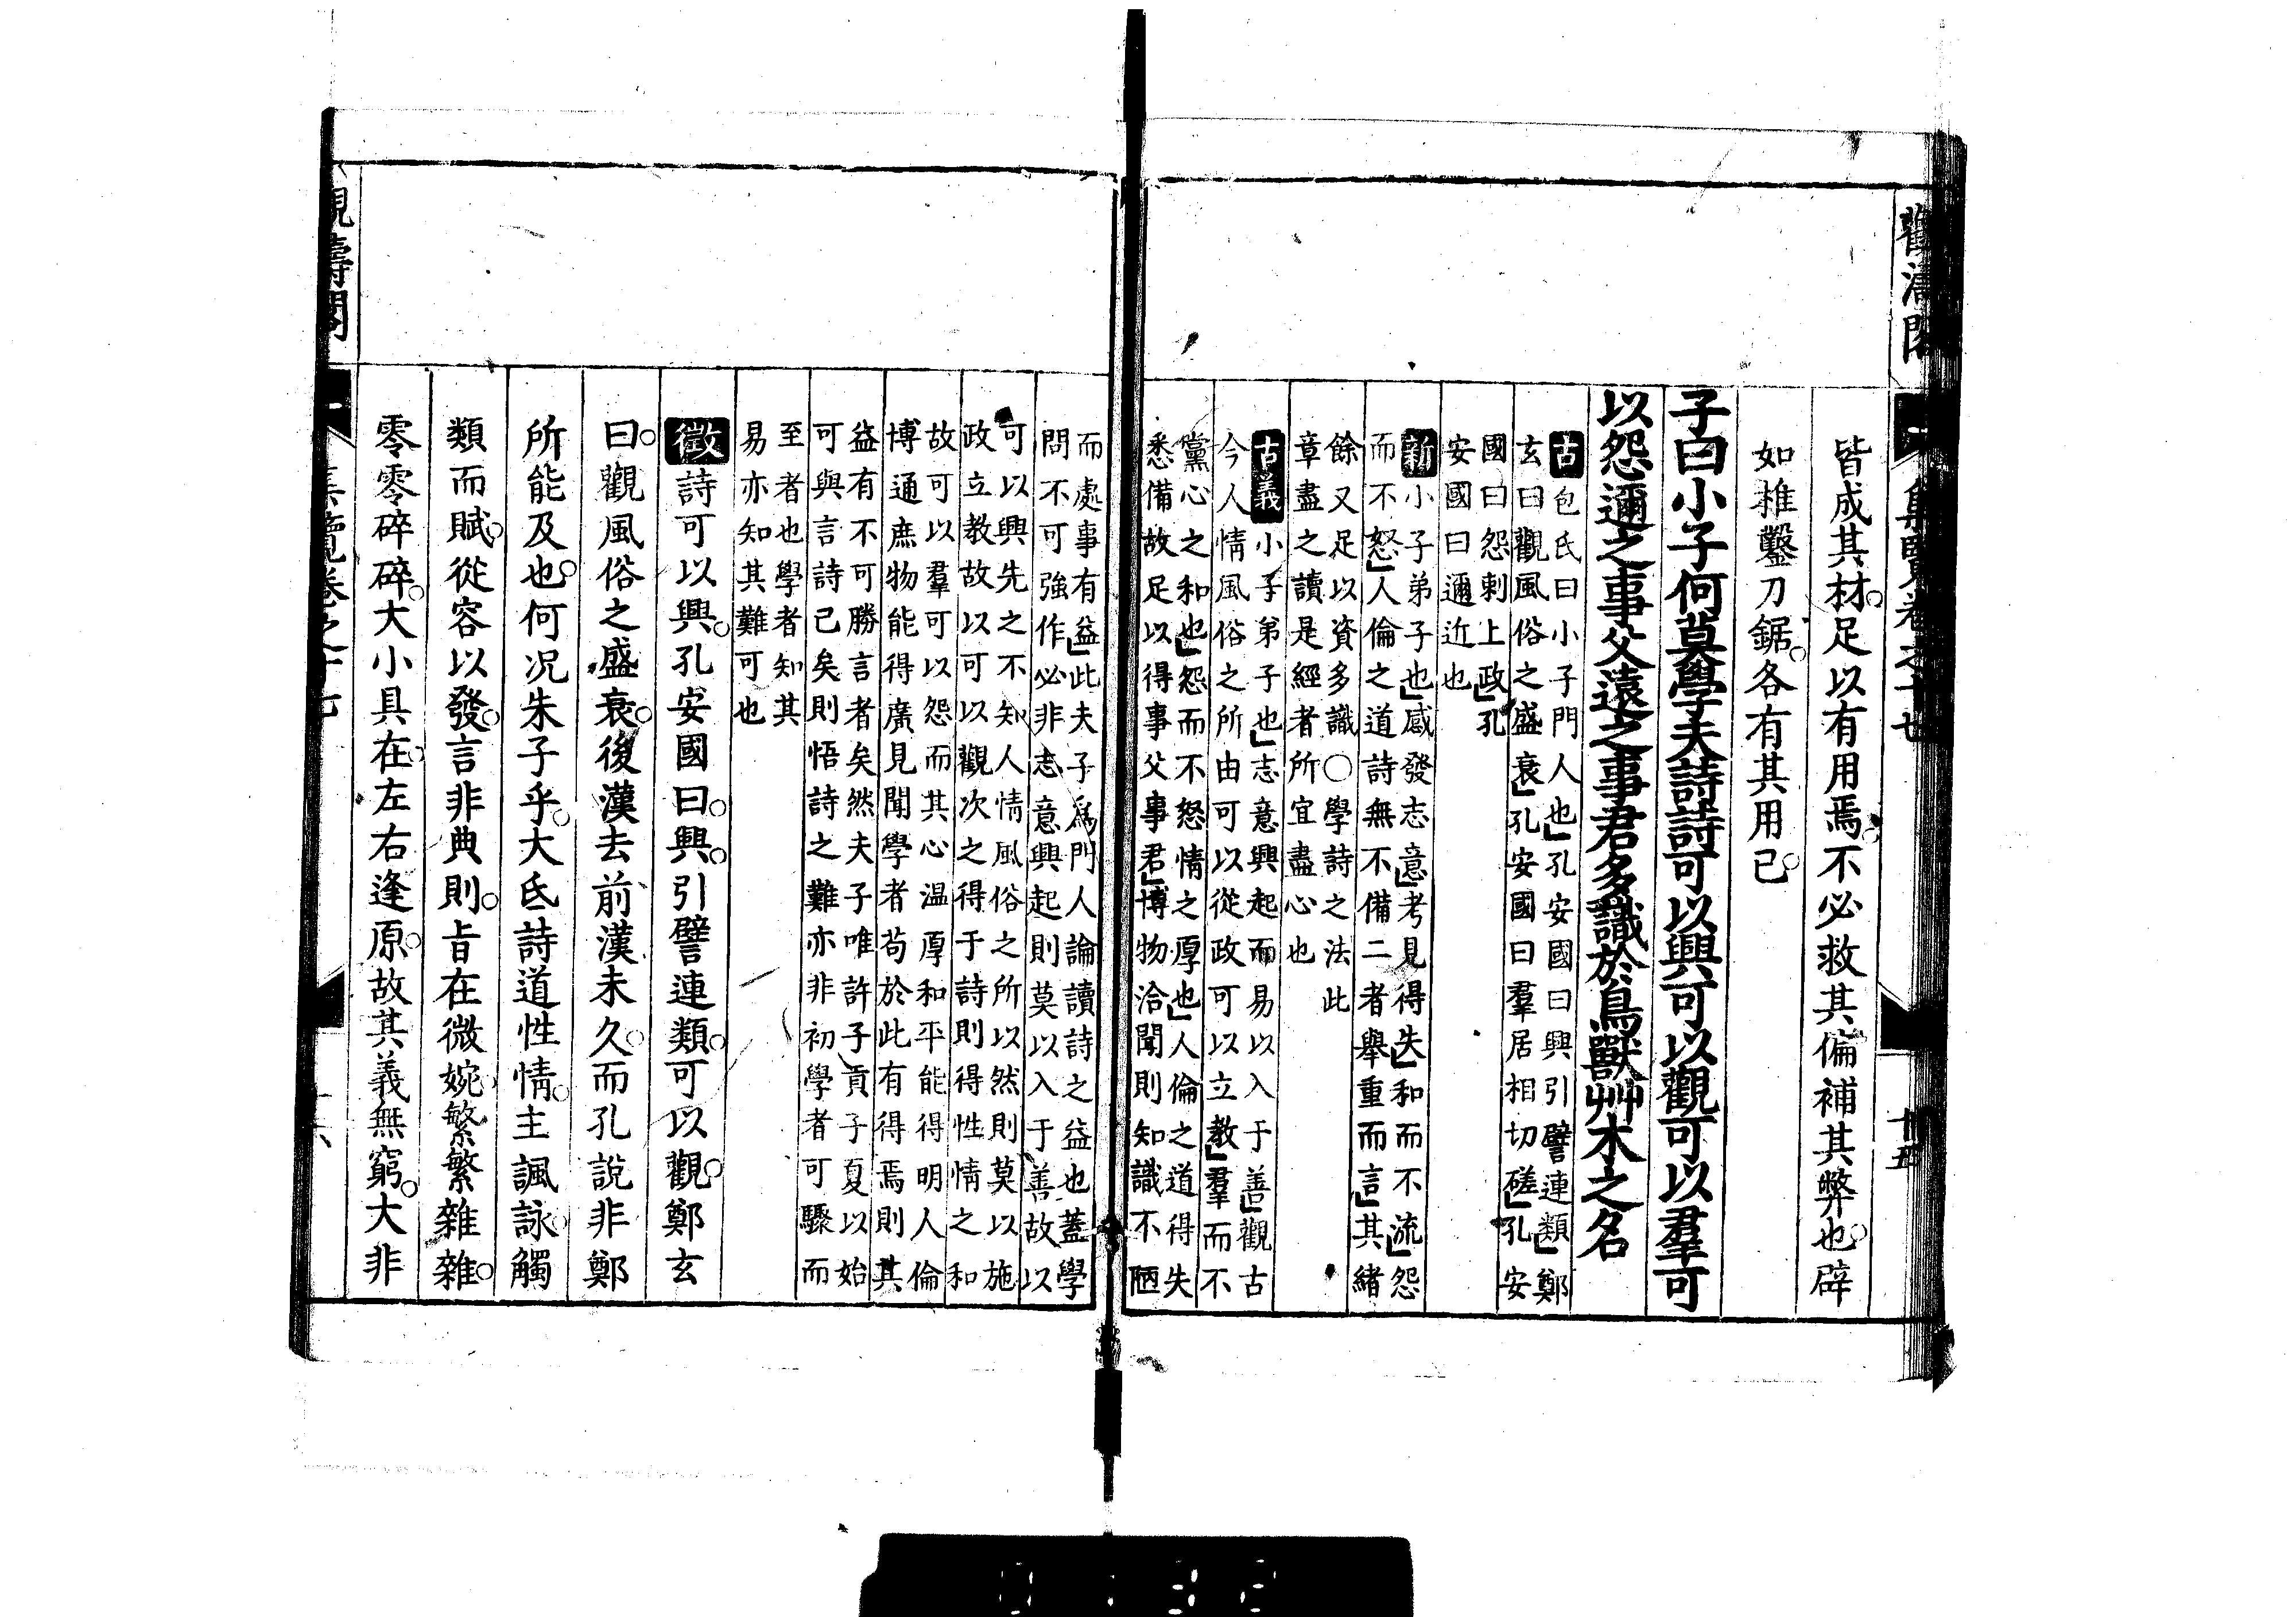 皆成其材足以有用焉不必救其偏補其弊也辟
如椎鑿刀鋸各有其用已
子曰小子何莫學夫詩詩可以興可以觀可以羣可
以怨邇之事父遠之事君多識於鳥獸艸木之名
古包氏曰小子門人也孔安國曰興引譬連類鄭
玄曰觀風俗之盛衰孔安國曰羣居相切磋孔安
國曰怨刺上政孔
安國曰邇近也
新小子弟子也感發志意考見得失和而不流怨
而不怒人倫之道詩無不備二者舉重而言其緒
餘又足以資多識○學詩之法此
章盡之讀是經者所宜盡心也
古義小子弟子也志意興起而易以入于善觀古
今人情風俗之所由可以從政可以立教羣而不
黨心之和也怨而不怒情之厚也人倫之道得失
悉備故足以得事父事君博物洽聞則知識不陋
而處事有益此夫子爲門人論讀詩之益也蓋學
問不可強作必非志意興起則莫以入于善故以
可以興先之不知人情風俗之所以然則莫以施
政立教故以可以觀次之得于詩則得性情之和
故可以羣可以怨而其心溫厚和平能得明人倫
博通庶物能得廣見聞學者苟於此有得焉則其
益有不可勝言者矣然夫子唯許子貢子夏以始
可與言詩已矣則悟詩之難亦非初學者可驟而
至者也學者知其
易亦知其難可也
徵詩可以興孔安國曰興引譬連類可以觀鄭玄
曰觀風俗之盛衰後漢去前漢未久而孔說非鄭
所能及也何況朱子乎大氐詩道性情主諷詠觸
類而賦從容以發言非典則旨在微婉繁繁雜雜
零零碎碎大小具在左右逢原故其義無窮大非